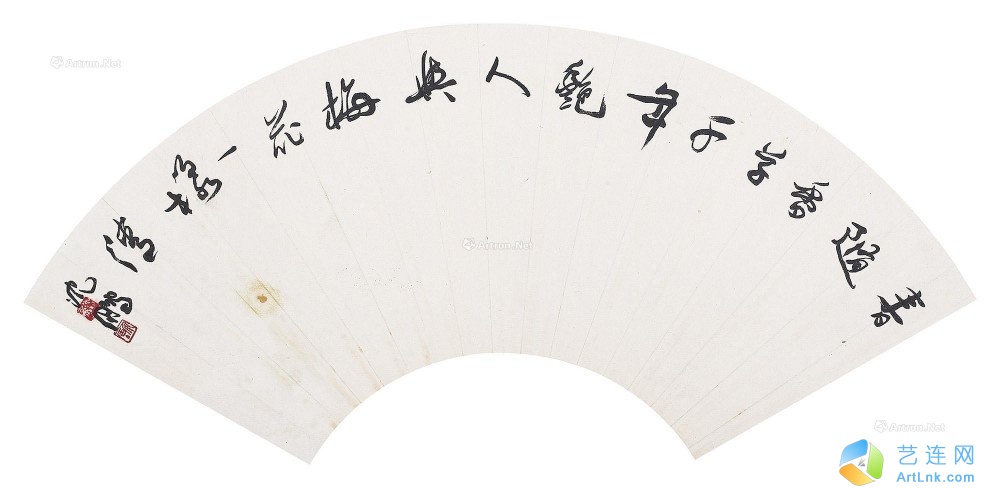 春隨香草千年艷人與梅花一樣清
Artron.Net
Artron.Net
Artron.Net
艺连网
ArtLnk.com